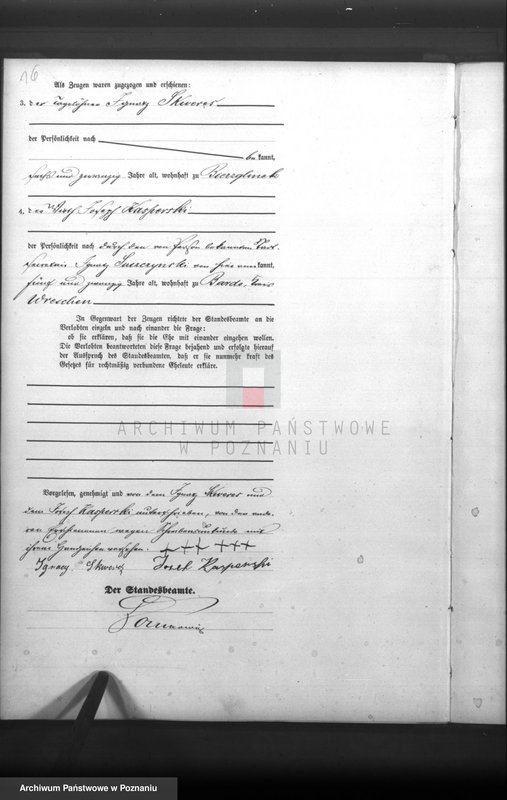 16
Als Zeugen waren zugezogen und erschienen:
3. der Tagelöhner Ignacy Skweres
der Persönlichkeit nach
bekannt,
sechs und zwanzig Jahre alt, wohnhaft zu Bierzglinek
4. der Wirth Joseph Kasperski
der Persönlichkeit nach durch den von Person bekannten
Ignacy von hier anerkannt,
fünf und zwanzig Jahre alt, wohnhaft zu Bardo, Kreis
Wreschen
In Gegenwart der Zeugen richtete der Standesbeamte an die
Verlobten einzeln und nach einander die Frage:
ob sie erklären, daß sie die Ehe mit einander eingehen wollen.
Die Verlobten beantworteten diese Frage bejahend und erfolgte hierauf
der Ausspruch des Standesbeamten, daß er sie nunmehr kraft des
Gesetzes für rechtmäßig verbundene Eheleute erkläre.
ARCHIWUM PAŃSTWOWE
W POZNANIU
Vorgelesen, genehmigt und von dem Ignacy Skweres und
dem Joseph Kasperski unterschrieben, von den ande-
ren Erschienenen wegen Schreibensunkunde mit
ihren Handzeichen versehen. +++ +++
Ignacy Skweres Josef Kasperski
Der Standesbeamte.
Archiwum Państwowe w Poznaniu